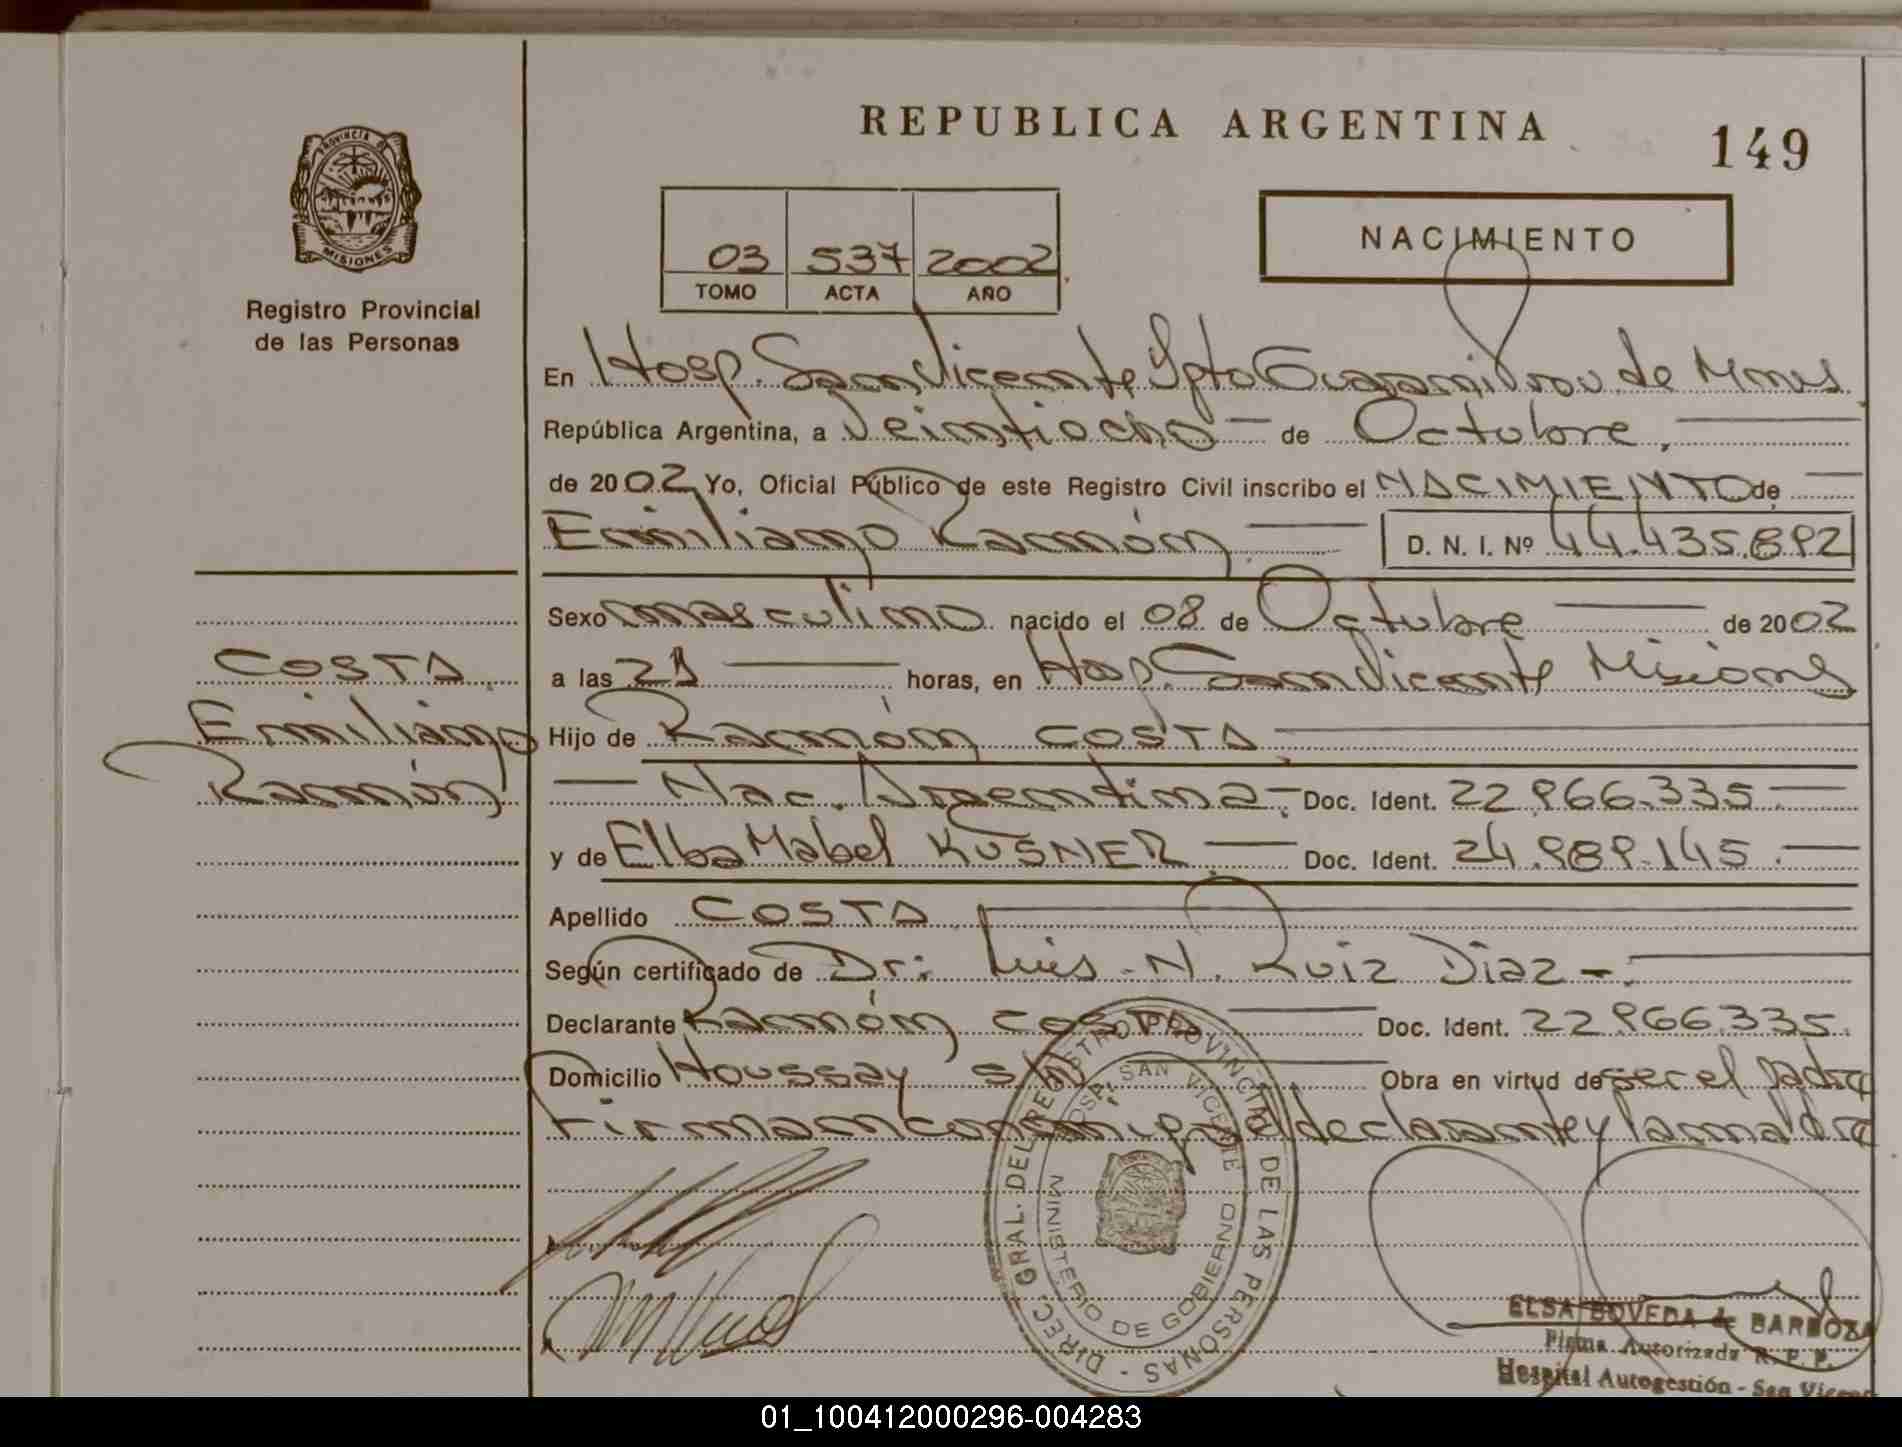 REPUBLICA ARGENTINA
149
PROVINCIA DE
MISIONES
Registro Provincial
de las Personas
03 537 2002
TOMO ACTA AÑO
NACIMIENTO
En Hosp. San Vicente Dpto Guaraní Prov. de Mnes
República Argentina, a Veintiocho de Octubre,
de 2002 Yo, Oficial Público de este Registro Civil inscribo el NACIMIENTO de
Emiliano Ramón D. N. I. Nº 44.435.892
Sexo masculino nacido el 08 de Octubre de 2002
a las 21 horas, en Hosp. San Vicente Misiones
Hijo de Ramón COSTA
Nac. Argentina- Doc. Ident. 22.966.335
y de Elba Mabel KUSNER Doc. Ident. 24.989.145
Apellido COSTA
Según certificado de Dr: Luis N. Ruiz Diaz
Declarante Ramón COSTA Doc. Ident. 22.966.335
Domicilio Houssay s/n Obra en virtud de ser el padre
Firman conmigo el declarante y la madre
COSTA
Emiliano
Ramón
DIREC. GRAL. DEL REGISTRO PROVINCIAL DE LAS PERSONAS -
HOSP. SAN VICENTE
MINISTERIO DE GOBIERNO
ELSA BOVEDA de BARBOZA
Firma Autorizada R. P. P.
Hospital Autogestión - San Vicente
01_100412000296-004283